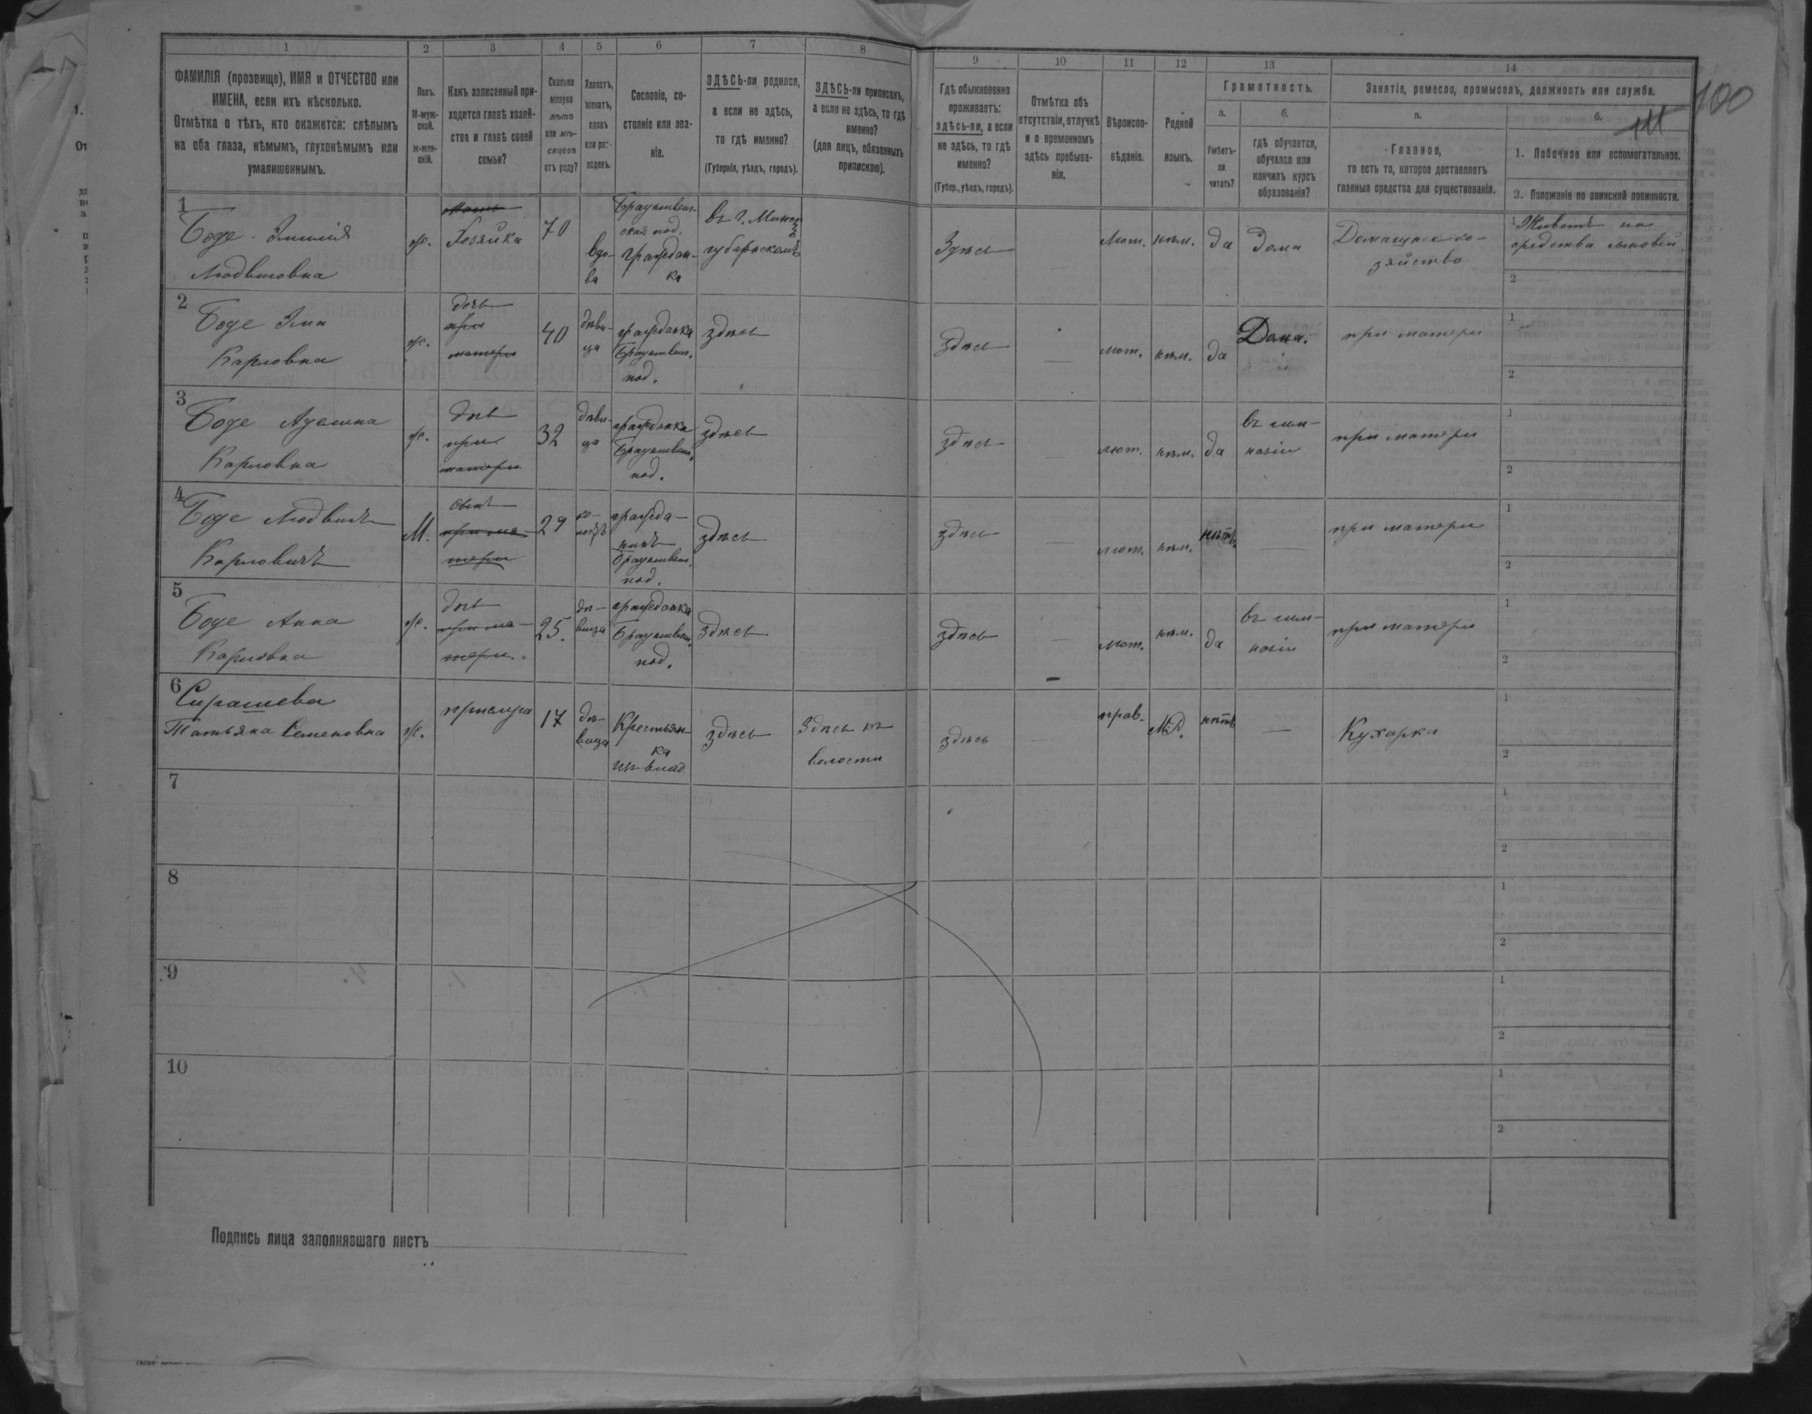 100
1 2 3 4 5 6 7 8 9 10 11 12 13 14
ФАМИЛІЯ (прозвище), ИМЯ и ОТЧЕСТВО или
ИМЕНА, если ихъ нѣсколько.
Отмѣтка о тѣхъ, кто окажется: слѣпымъ
на оба глаза, нѣмымъ, глухонѣмымъ или
умалишеннымъ.
Полъ.
М-муж-
ской.
ж-жен-
скій.
Какъ записанный при-
ходится главѣ хозяй-
ства и главѣ своей
семьи?
Сколько
минуло
лѣтъ
или мѣ-
сяцевъ
отъ роду?
Холостъ,
женатъ,
вдовъ
или раз-
веденъ.
Сословіе, со-
стояніе или зва-
ніе.
ЗДѢСЬ-ли родился,
а если не здѣсь,
то гдѣ именно?
(Губернія, уѣздъ, городъ).
ЗДѢСЬ-ли приписанъ,
а если не здѣсь, то гдѣ
именно?
(для лицъ, обязанныхъ
припискою).
Гдѣ обыкновенно
проживаетъ:
здѣсь-ли, а если
не здѣсь, то гдѣ
именно?
(Губер., уѣздъ, городъ).
Отмѣтка объ
отсутствіи, отлучкѣ
и о временномъ
здѣсь пребыва-
ніи.
Вѣроиспо-
вѣданіе.
Родной
языкъ.
Грамотность.
а.
Умѣетъ-
ли
читать?
б.
гдѣ обучается,
обучался или
кончилъ курсъ
образованія?
Занятіе, ремесло, промыселъ, должность или служба.
а.
Главное,
то есть то, которое доставляетъ
главныя средства для существованія.
б.
1. Побочное или вспомогательное.
2. Положеніе по воинской повинности.
1
Боде Эмилія
Людвиговна
ж.
Хозяйка
70
вдо-
ва
Брауншвейг-
скій под.
граждан-
ка
въ г. Минск
губернскомъ
Здѣсь
Лют.
нѣм.
да
Дома
Домашнее хо-
зяйство
1 Живетъ на
средства сыновей
2
2
Боде Эмма
Карловна
ж.
дочь
при
матери
40
дѣви-
ца
гражданка
Брауншвейг.
под.
здѣсь
здѣсь
—
лют.
нѣм.
да
Дома.
при матери
1
2
3
Боде Аделина
Карловна
ж.
дочь
при
матери
32
дѣви-
ца
гражданка
Брауншвейг.
под.
здѣсь
здѣсь
—
лют.
нѣм.
да
въ гим-
назіи
при матери
1
2
4
Боде Людвигъ
Карловичъ
М.
сынъ
при ма-
тери
29
хо-
лостъ
гражда-
нинъ
Брауншвейг.
под.
здѣсь
здѣсь
—
лют.
нѣм.
нѣтъ
—
при матери
1
2
5
Боде Анна
Карловна
ж.
дочь
при ма-
тери.
25.
дѣ-
вица
гражданка
Брауншвейг.
под.
здѣсь
здѣсь
—
лют.
нѣм.
да
въ гим-
назіи
при матери
1
2
6
Татьяна Семеновна
ж.
прислуга
17
дѣ-
вица
Крестьян-
ка
из влад
здѣсь
Здѣсь въ
волости
здѣсь
прав.
нѣтъ
—
Кухарка
1
2
7
1
2
8
1
2
9
1
2
10
1
2
Подпись лица заполнявшаго листъ